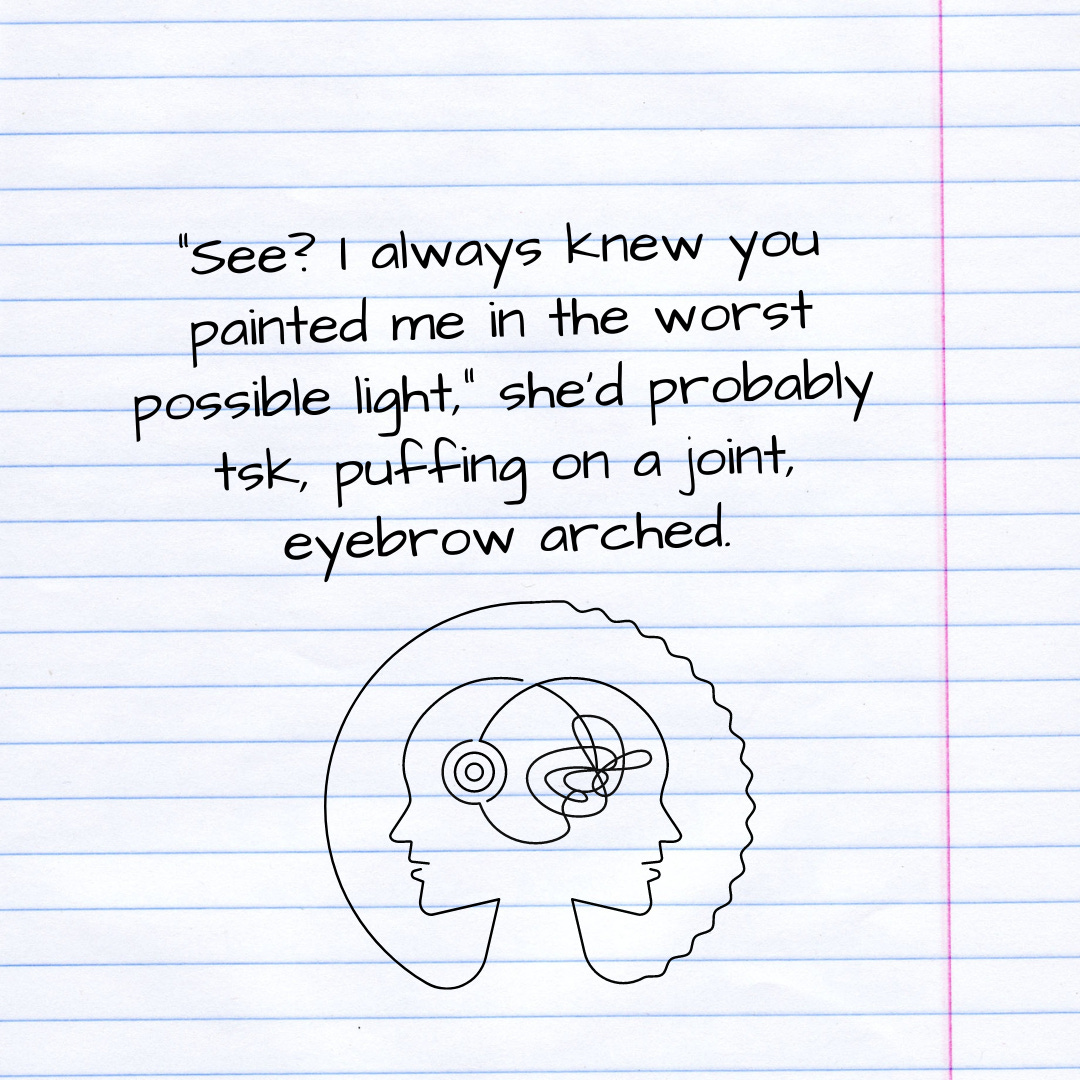 "See? I always knew you
painted me in the worst
possible light," she'd probably
tsk, puffing on a joint,
eyebrow arched.